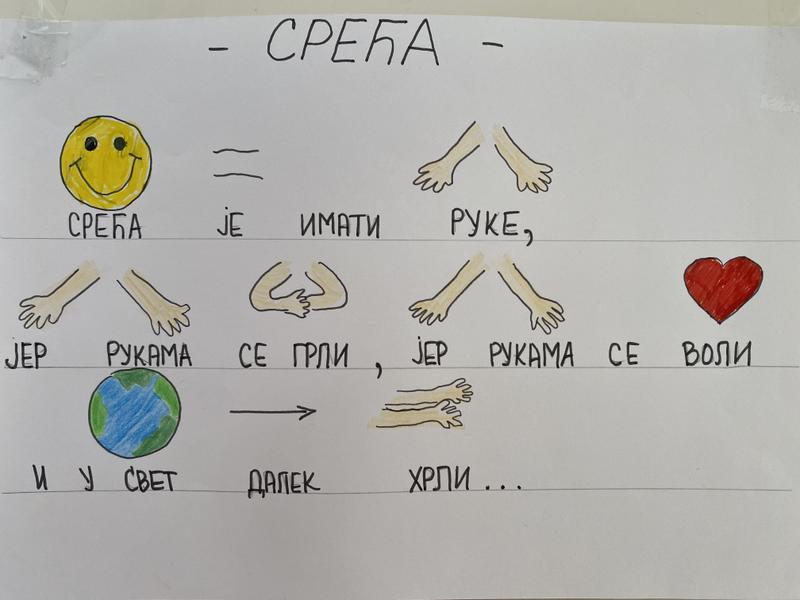 - СРЕЋА -
СРЕЋА ЈЕ ИМАТИ РУКЕ,
ЈЕР РУКАМА СЕ ГРЛИ, ЈЕР РУКАМА СЕ ВОЛИ
И У СВЕТ ДАЛЕК ХРЛИ...